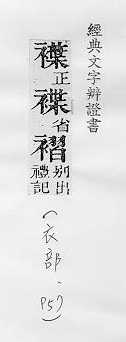 經典文字辨證書
正
褋省
褶別出禮記
(衣部、P57)